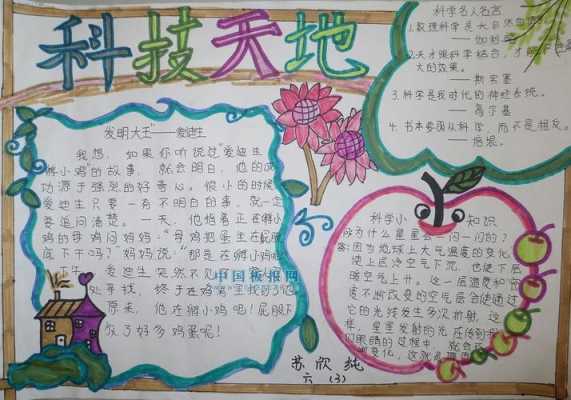 科技天地
发明大王"——爱迪生
我想,如果你听说过"爱迪生
孵小鸡"的故事,就会明白,他的成
功源于强烈的好奇心。很小的时候
爱迪生只要一有不明白的事,就一定
要追问清楚。一天,他指着正在孵小
鸡的母鸡问妈妈:"母鸡把蛋坐在屁股
底下干吗?"妈妈说:"那是在孵小鸡
爱迪生突然不见
处寻找,终于在鸡窝里找到了他
原来,他在孵小鸡吧!屁股下
放了好多鸡蛋呢!
中国板报网
科学名人名言
1.数理科学是大自然
——伽利略
2.天才跟科学结合,才
大的效果。
——斯宾塞
3.科学是我时代的神经系统。
——高尔基
4.书本要跟从科学,而不是相反。
——培根。
科学小知识
为什么星星会一闪一闪的?
答:因为地球上大气温度的变化
使上层冷空气下沉,也使下层
暖空气上升。这一层温度和密
度不断改变的空气层会使通过
它的光线发生多次折射,这
样,星星发射的光在传到
们眼睛的过程中,就会
变化,这就
苏欣纯
六(3)